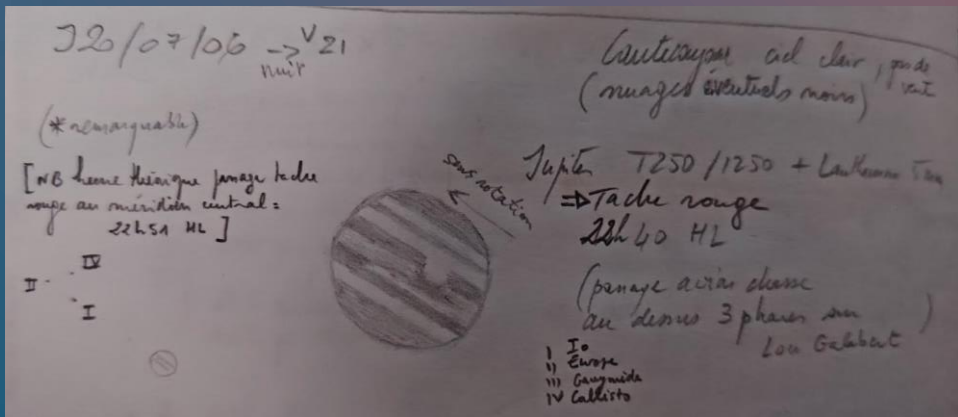 J20/07/06 -> V21
nuit
ciel clair, pas de vent
(nuages éventuels noirs)
(*remarquable)
[NB heure théorique passage tache
rouge au méridien central =
22h51 HL]
IV
II
I
sens rotation
Jupiter T250/1250 +
=> Tache rouge
22h40 HL
(passage avion chasse
au dessus 3 phares sur
Lou Galabert)
I Io
II Europe
III Ganymède
IV Callisto